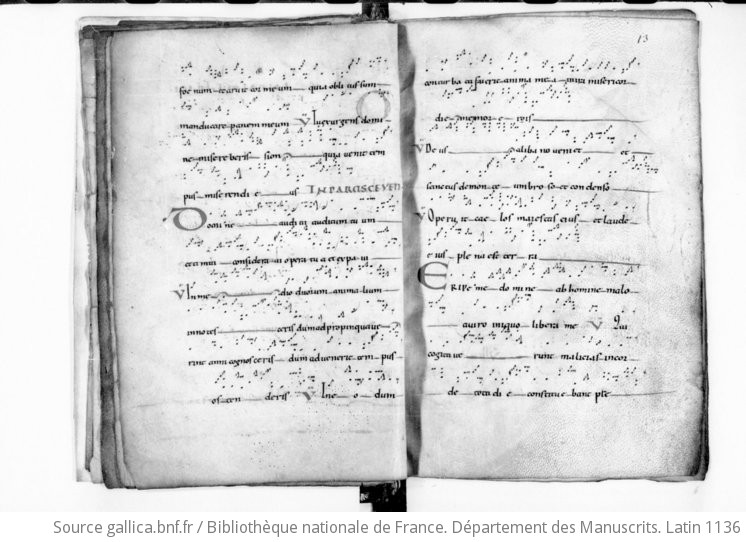 foenum et aruit cor meum quia oblitus sum
manducare panem meum V Tu exurgens domi
ne misereberis sion quia venit tem
pus miserendi eius IN PARASCEVEN
Domine audivi auditum tuum
et timui consideravi opera tua et expavi
V In medio duorum animalium
innotesceris dum adpropinquaverint
rint anni cognosceris dum advenerit tempus
ostenderis V In eo dum
13
conturbata fuerit anima mea in ira misericor
diae memor eris
V Deus a libano veniet et
sanctus de monte umbroso et condenso
V Operuit caelos maiestas eius et laude
eius plena est terra
ERIPE me domine ab homine malo
a viro iniquo libera me V Qui
cogitaverunt malicias in cor
de tota die constituebant prae
Source gallica.bnf.fr / Bibliothèque nationale de France. Département des Manuscrits. Latin 1136